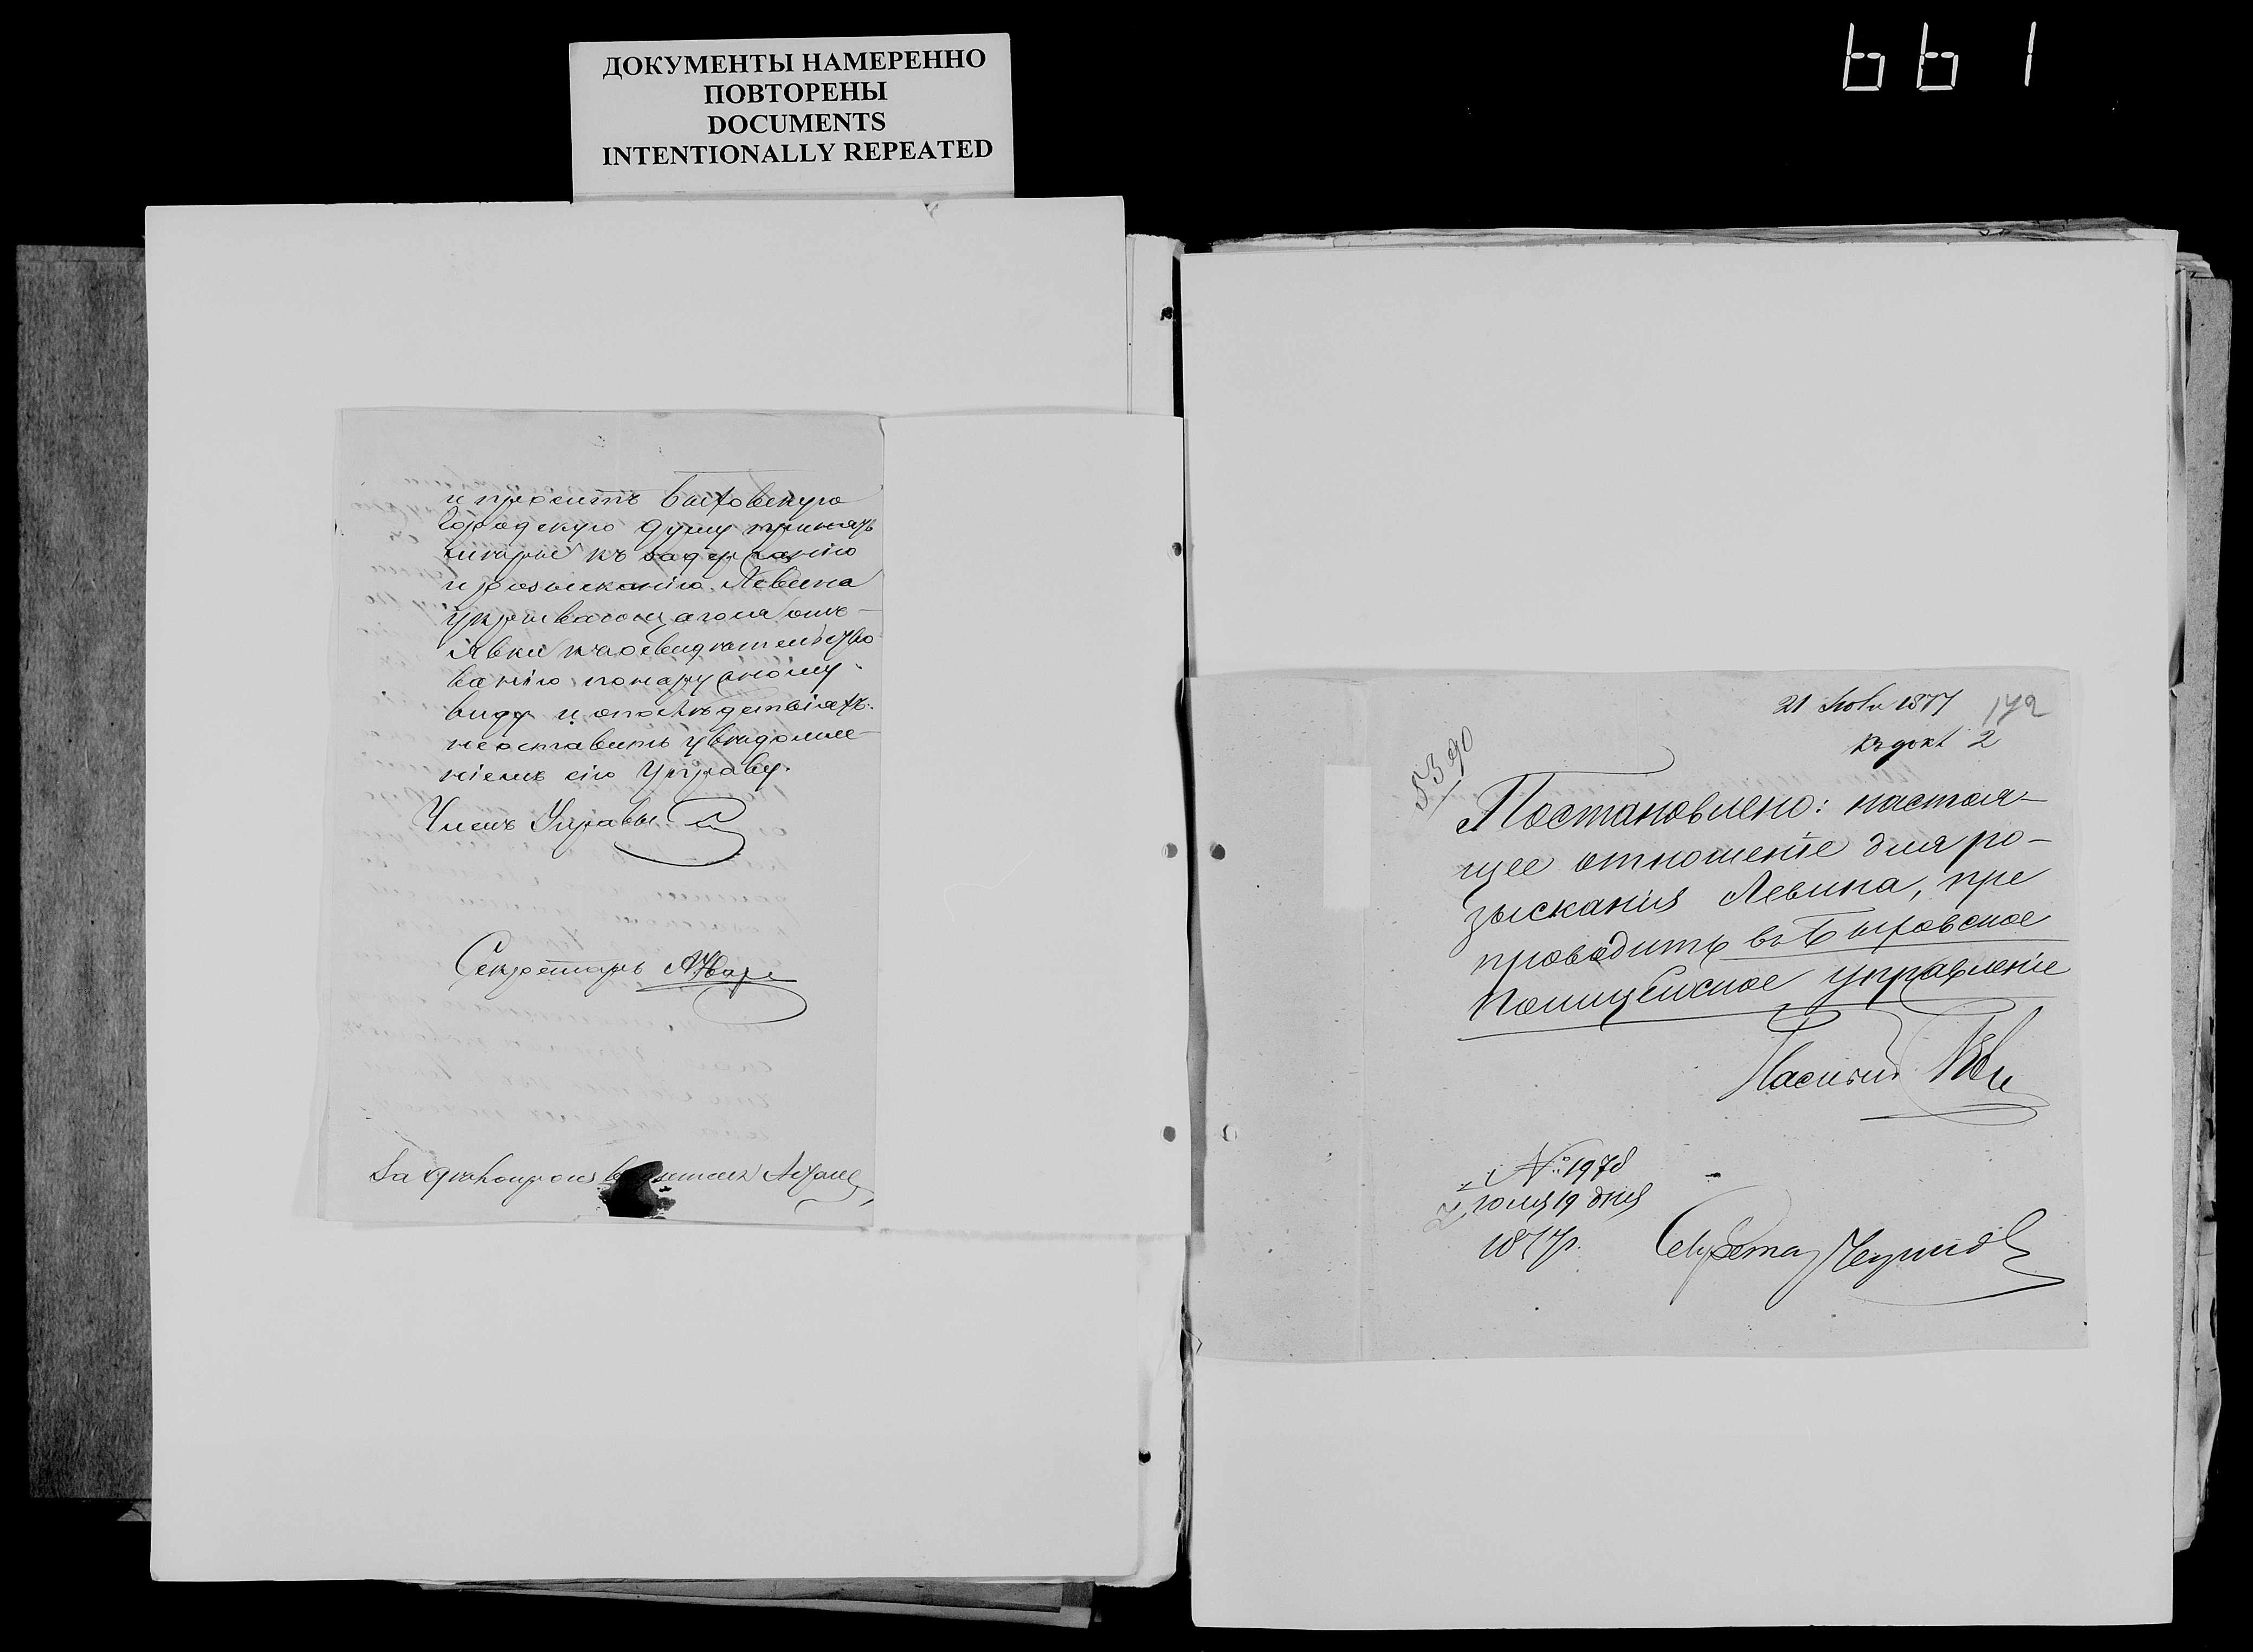 ДОКУМЕНТЫ НАМЕРЕННО
ПОВТОРЕНЫ
DOCUMENTS
INTENTIONALLY REPEATED
661
и проситъ Быховскую
Городскую Думу принять
къ задержанію
и розысканію Левина
укрывающагося отъ
явки къ освидѣтельство
ванію по наружному
виду и о послѣдствіяхъ
не оставить увѣдомле-
ніемъ сію Управу.
Членъ Управы
Секретарь
За
21 1877 172
2
5390
Постановлено: настоя-
щее отношеніе для ро-
зысканія Левина, пре
проводить въ Быховское
Полицейское управленіе
№ 1978
Іюля 19 дня
1877 г.
Секретарь